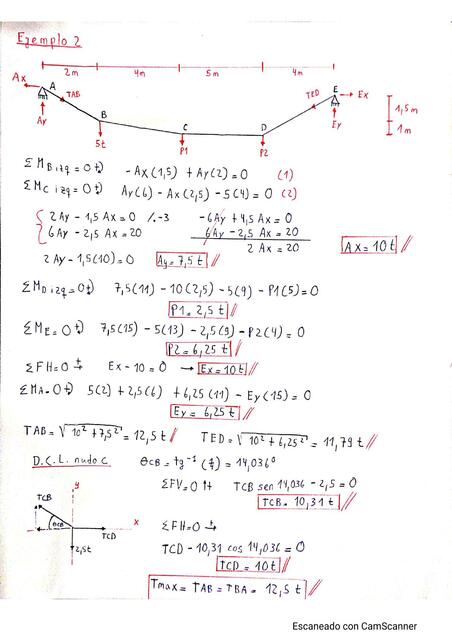 Ejemplo 2
2m 4m 5m 4m
Ax A TAB TED E Ex
Ay B C D Ey 1,5m
5t P1 P2 1m
ΣMB izq = 0 -Ax(1,5) + Ay(2) = 0 (1)
ΣMC izq = 0 Ay(6) - Ax(2,5) - 5(4) = 0 (2)
2Ay - 1,5Ax = 0 /·-3 -6Ay + 4,5Ax = 0
6Ay - 2,5Ax = 20 6Ay - 2,5Ax = 20
2Ax = 20 Ax = 10t //
2Ay - 1,5(10) = 0 Ay = 7,5t //
ΣMD izq = 0 7,5(11) - 10(2,5) - 5(9) - P1(5) = 0
P1 = 2,5t //
ΣME = 0 7,5(15) - 5(13) - 2,5(9) - P2(4) = 0
P2 = 6,25t //
ΣFH = 0 → Ex - 10 = 0 → Ex = 10t //
ΣMA = 0 5(2) + 2,5(6) + 6,25(11) - Ey(15) = 0
Ey = 6,25t //
TAB = √10² + 7,5² = 12,5t // TED = √10² + 6,25² = 11,79t //
D.C.L. nudo C θCB = tg⁻¹(1/4) = 14,036°
y ΣFV = 0 ↑+ TCB sen 14,036 - 2,5 = 0
TCB TCB = 10,31t //
θCB x ΣFH = 0 →
TCD
2,5t TCD - 10,31 cos 14,036 = 0
TCD = 10t //
Tmax = TAB = TBA = 12,5t //
Escaneado con CamScanner